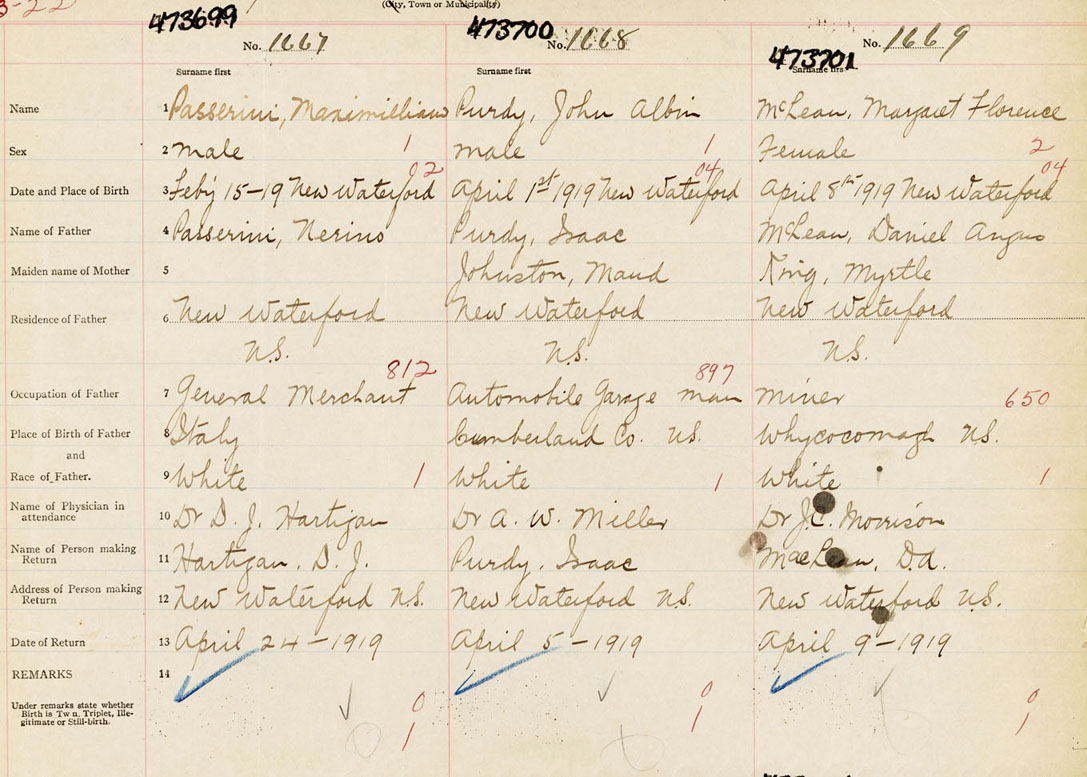 3-22
(City, Town or Municipality)
473699 473700 473701
No. 1667 No. 1668 No. 1669
Surname first Surname first Surname first
Name 1 Passerini, Maximillian Purdy, John Albin McLean, Margaret Florence
Sex 2 male 1 male 1 Female 2
02 04 04
Date and Place of Birth 3 Feb'y 15-19 New Waterford April 1st 1919 New Waterford April 8th 1919 New Waterford
Name of Father 4 Passerini, Nerino Purdy, Isaac McLean, Daniel Angus
Maiden name of Mother 5 Johnston, Maud King, Myrtle
Residence of Father 6 New Waterford New Waterford New Waterford
N.S. N.S. N.S.
812 897 650
Occupation of Father 7 General Merchant Automobile Garage man Miner
Place of Birth of Father 8 Italy Cumberland Co. N.S. Whycocomagh N.S.
and
Race of Father. 9 White 1 White 1 White 1
Name of Physician in
attendance 10 Dr D. J. Hartigan Dr A. W. Miller Dr J.C. Morrison
Name of Person making
Return 11 Hartigan. D. J. Purdy. Isaac MacLean, D.A.
Address of Person making
Return 12 New Waterford N.S. New Waterford N.S. New Waterford N.S.
Date of Return 13 April 24-1919 April 5-1919 April 9-1919
REMARKS 14
Under remarks state whether
Birth is Twn, Triplet, Ille-
gitimate or Still-birth.
0 0 0
1 1 1